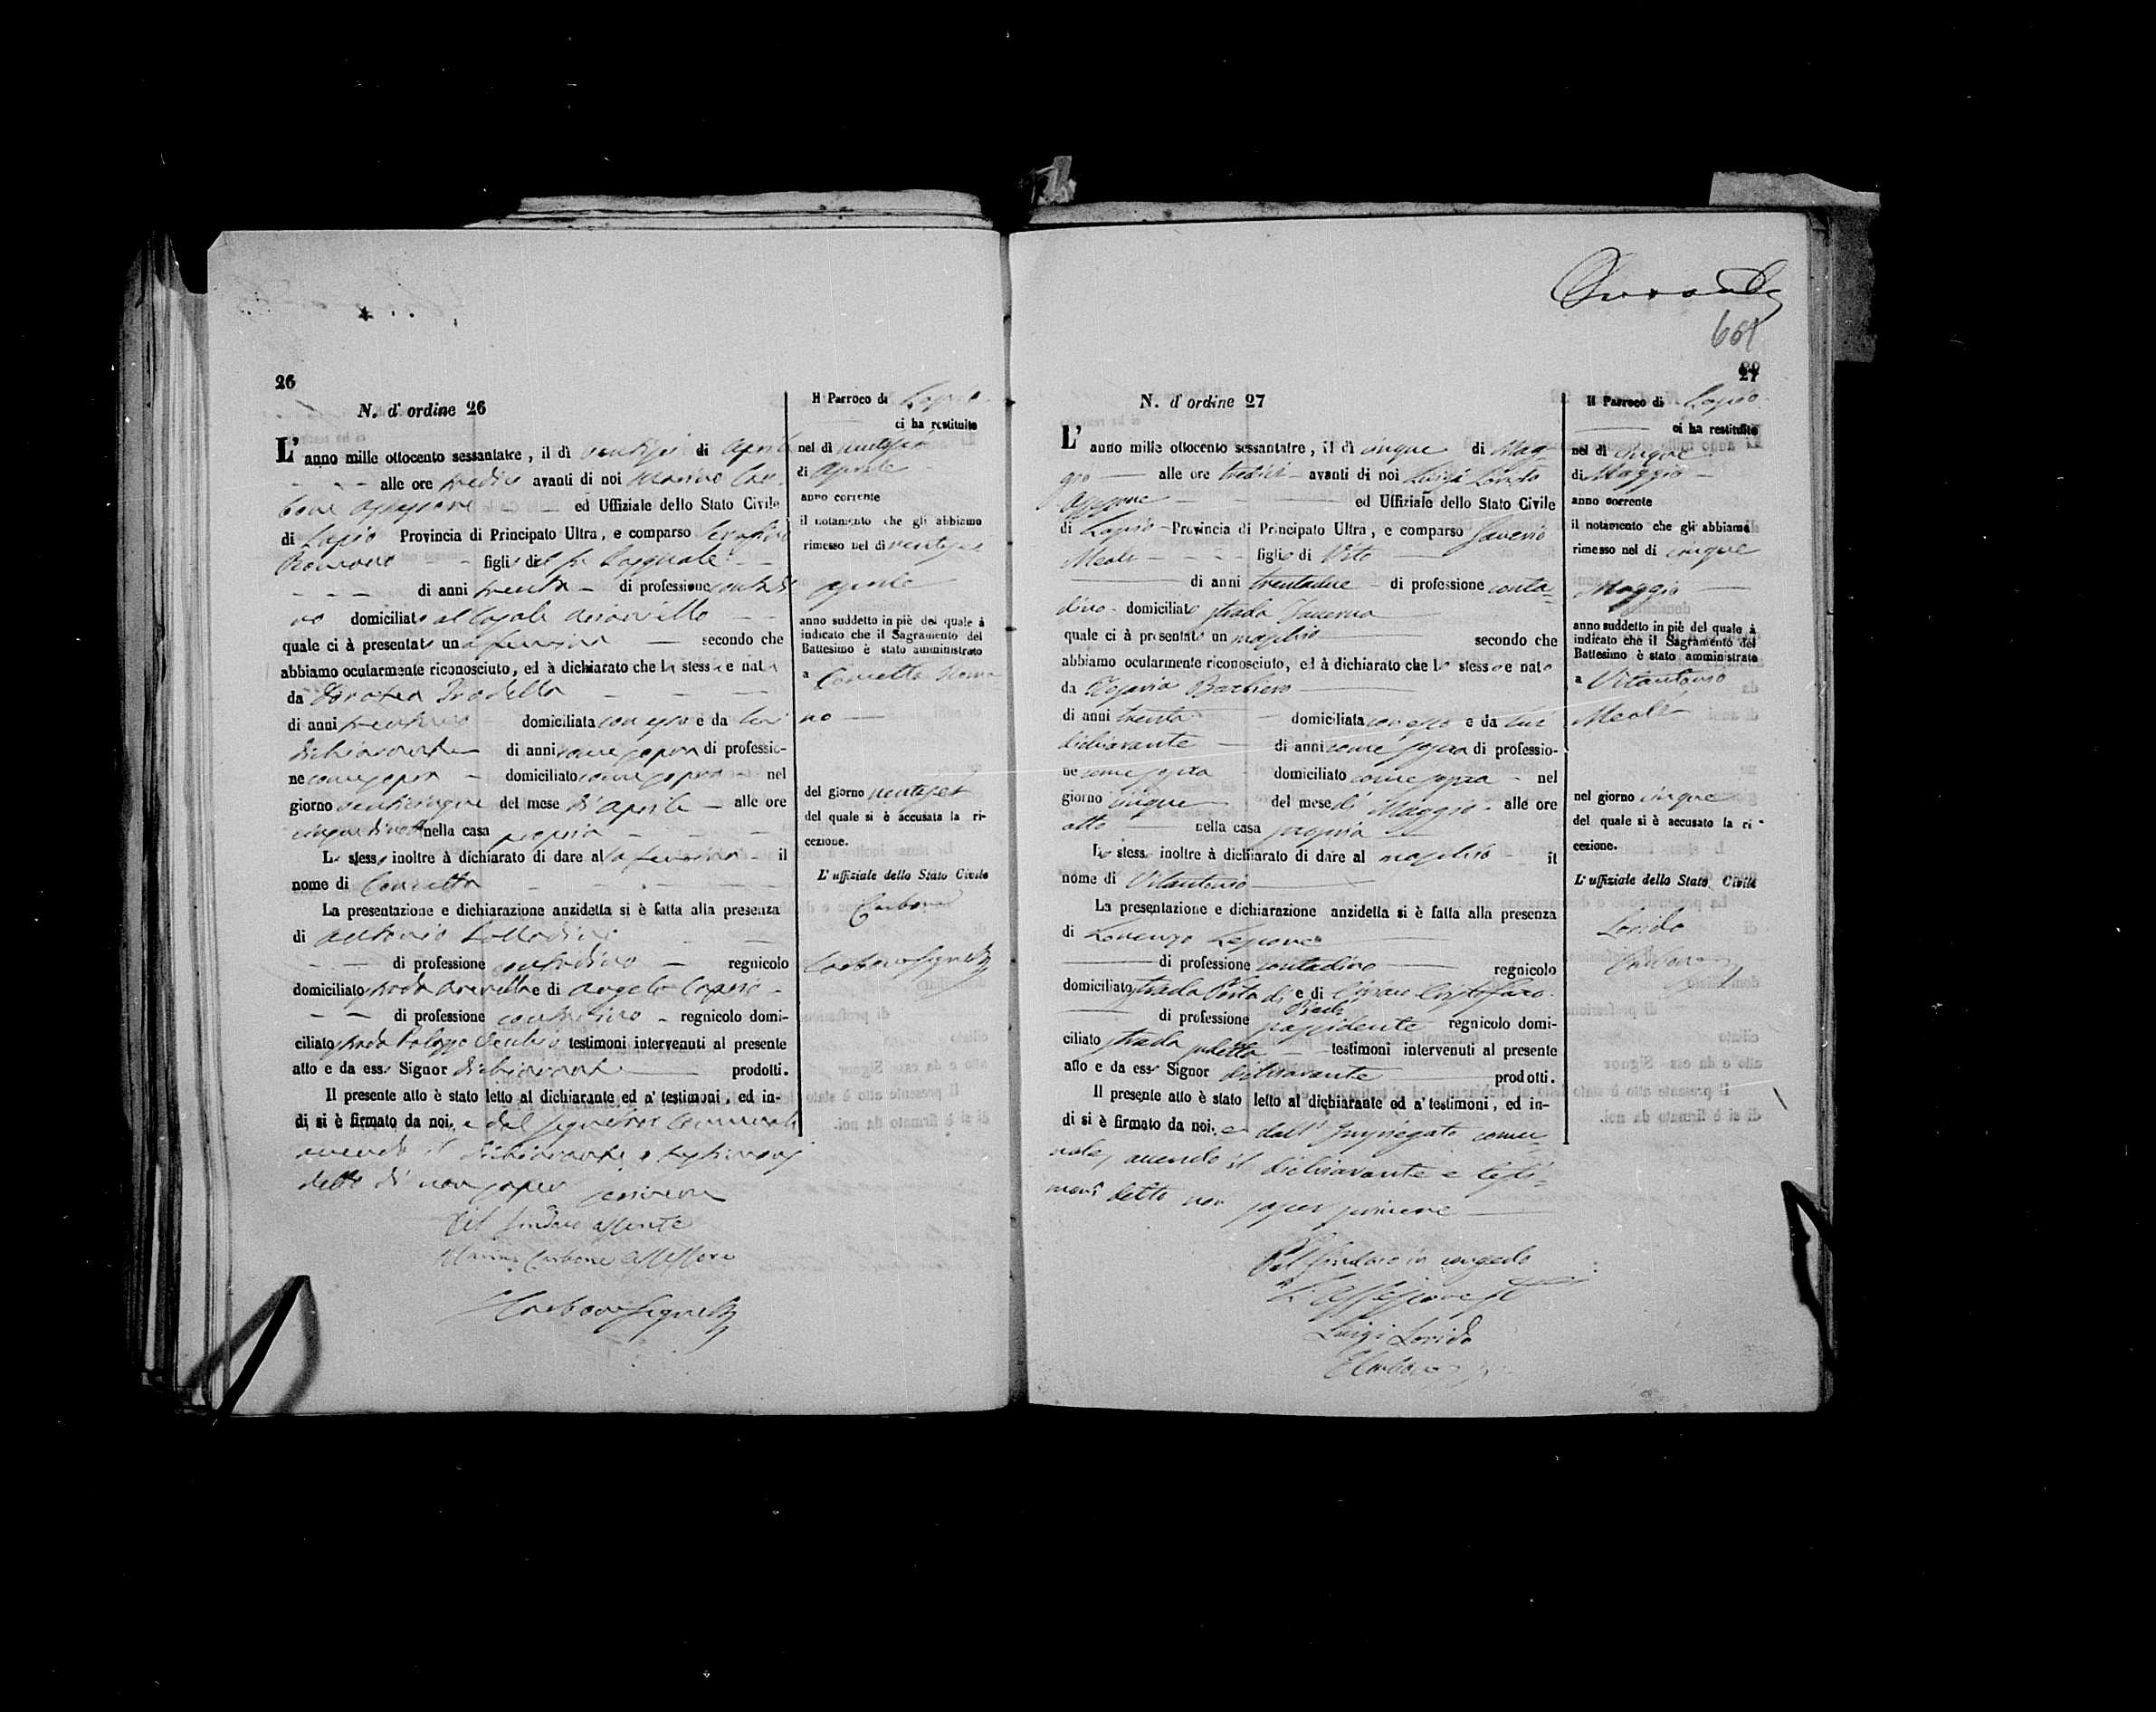 26
N. d'ordine 26
L'anno mille ottocento sessantatre, il dì ventisei di Aprile
alle ore tredici avanti di noi Marino Car-
bone Assessore ed Uffiziale dello Stato Civile
di Lapio Provincia di Principato Ultra, e comparso Serafino
Romano figlio del fu Pasquale
di anni trenta di professione contadi
no domiciliato al Casale
quale ci à presentato una femina secondo che
abbiamo ocularmente riconosciuto, ed à dichiarato che la stessa e nata
da
di anni domiciliata con esso e da lui
dichiarante di anni come sopra di professio-
ne come sopra domiciliato come sopra nel
giorno venticinque del mese di Aprile alle ore
nella casa propria
Lo stesso inoltre à dichiarato di dare alla femina il
nome di Concetta
La presentazione e dichiarazione anzidetta si è fatta alla presenza
di Antonio
di professione contadino regnicolo
domiciliato strada e di Angelo
di professione contadino regnicolo domi-
ciliato strada Palazzo Vecchio testimoni intervenuti al presente
atto e da esso Signor dichiarante prodotti.
Il presente atto è stato letto al dichiarante ed a' testimoni, ed in-
di si è firmato da noi, e dal
avendo il dichiarante e testimoni
detto di non saper scrivere
Pel Sindaco assente
Marino Carbone Assessore
Il Parroco di Lapio
ci ha restituito
nel dì ventisei
di Aprile
anno corrente
il notamento che gli abbiamo
rimesso nel dì ventisei
Aprile
anno suddetto in piè del quale à
indicato che il Sagramento del
Battesimo è stato amministrato
a Concetta Roma
no
del giorno ventisei
del quale si è accusata la ri-
cezione.
L'uffiziale dello Stato Civile
Carbone
661
27
N. d'ordine 27
L'anno mille ottocento sessantatre, il dì cinque di Mag-
gio alle ore tredici avanti di noi Luigi Lorido
Assessore ed Uffiziale dello Stato Civile
di Lapio Provincia di Principato Ultra, e comparso Saverio
Meoli figlio di Vito
di anni trentadue di professione conta-
dino domiciliato strada Taverna
quale ci à presentato un maschio secondo che
abbiamo ocularmente riconosciuto, ed à dichiarato che lo stesso e nato
da Rosaria Barbiero
di anni trenta domiciliata con esso e da lui
dichiarante di anni come sopra di professio-
ne come sopra domiciliato come sopra nel
giorno cinque del mese di Maggio alle ore
otto nella casa propria
Lo stesso inoltre à dichiarato di dare al maschio il
nome di Vitantonio
La presentazione e dichiarazione anzidetta si è fatta alla presenza
di Lorenzo
di professione contadino regnicolo
domiciliato strada Porta di e di
di professione possidente regnicolo domi-
ciliato strada testimoni intervenuti al presente
atto e da esso Signor dichiarante prodotti.
Il presente atto è stato letto al dichiarante ed a' testimoni, ed in-
di si è firmato da noi, e dall'Impiegato comu-
nale, avendo il dichiarante e testi-
moni detto non saper scrivere
Pel Sindaco in congedo
L'Assessore
Luigi Lorido
Il Parroco di Lapio
ci ha restituito
nel dì cinque
di Maggio
anno corrente
il notamento che gli abbiamo
rimesso nel dì cinque
Maggio
anno suddetto in piè del quale à
indicato che il Sagramento del
Battesimo è stato amministrato
a Vitantonio
Meoli
nel giorno cinque
del quale si è accusato la ri-
cezione.
L'uffiziale dello Stato Civile
Lorido